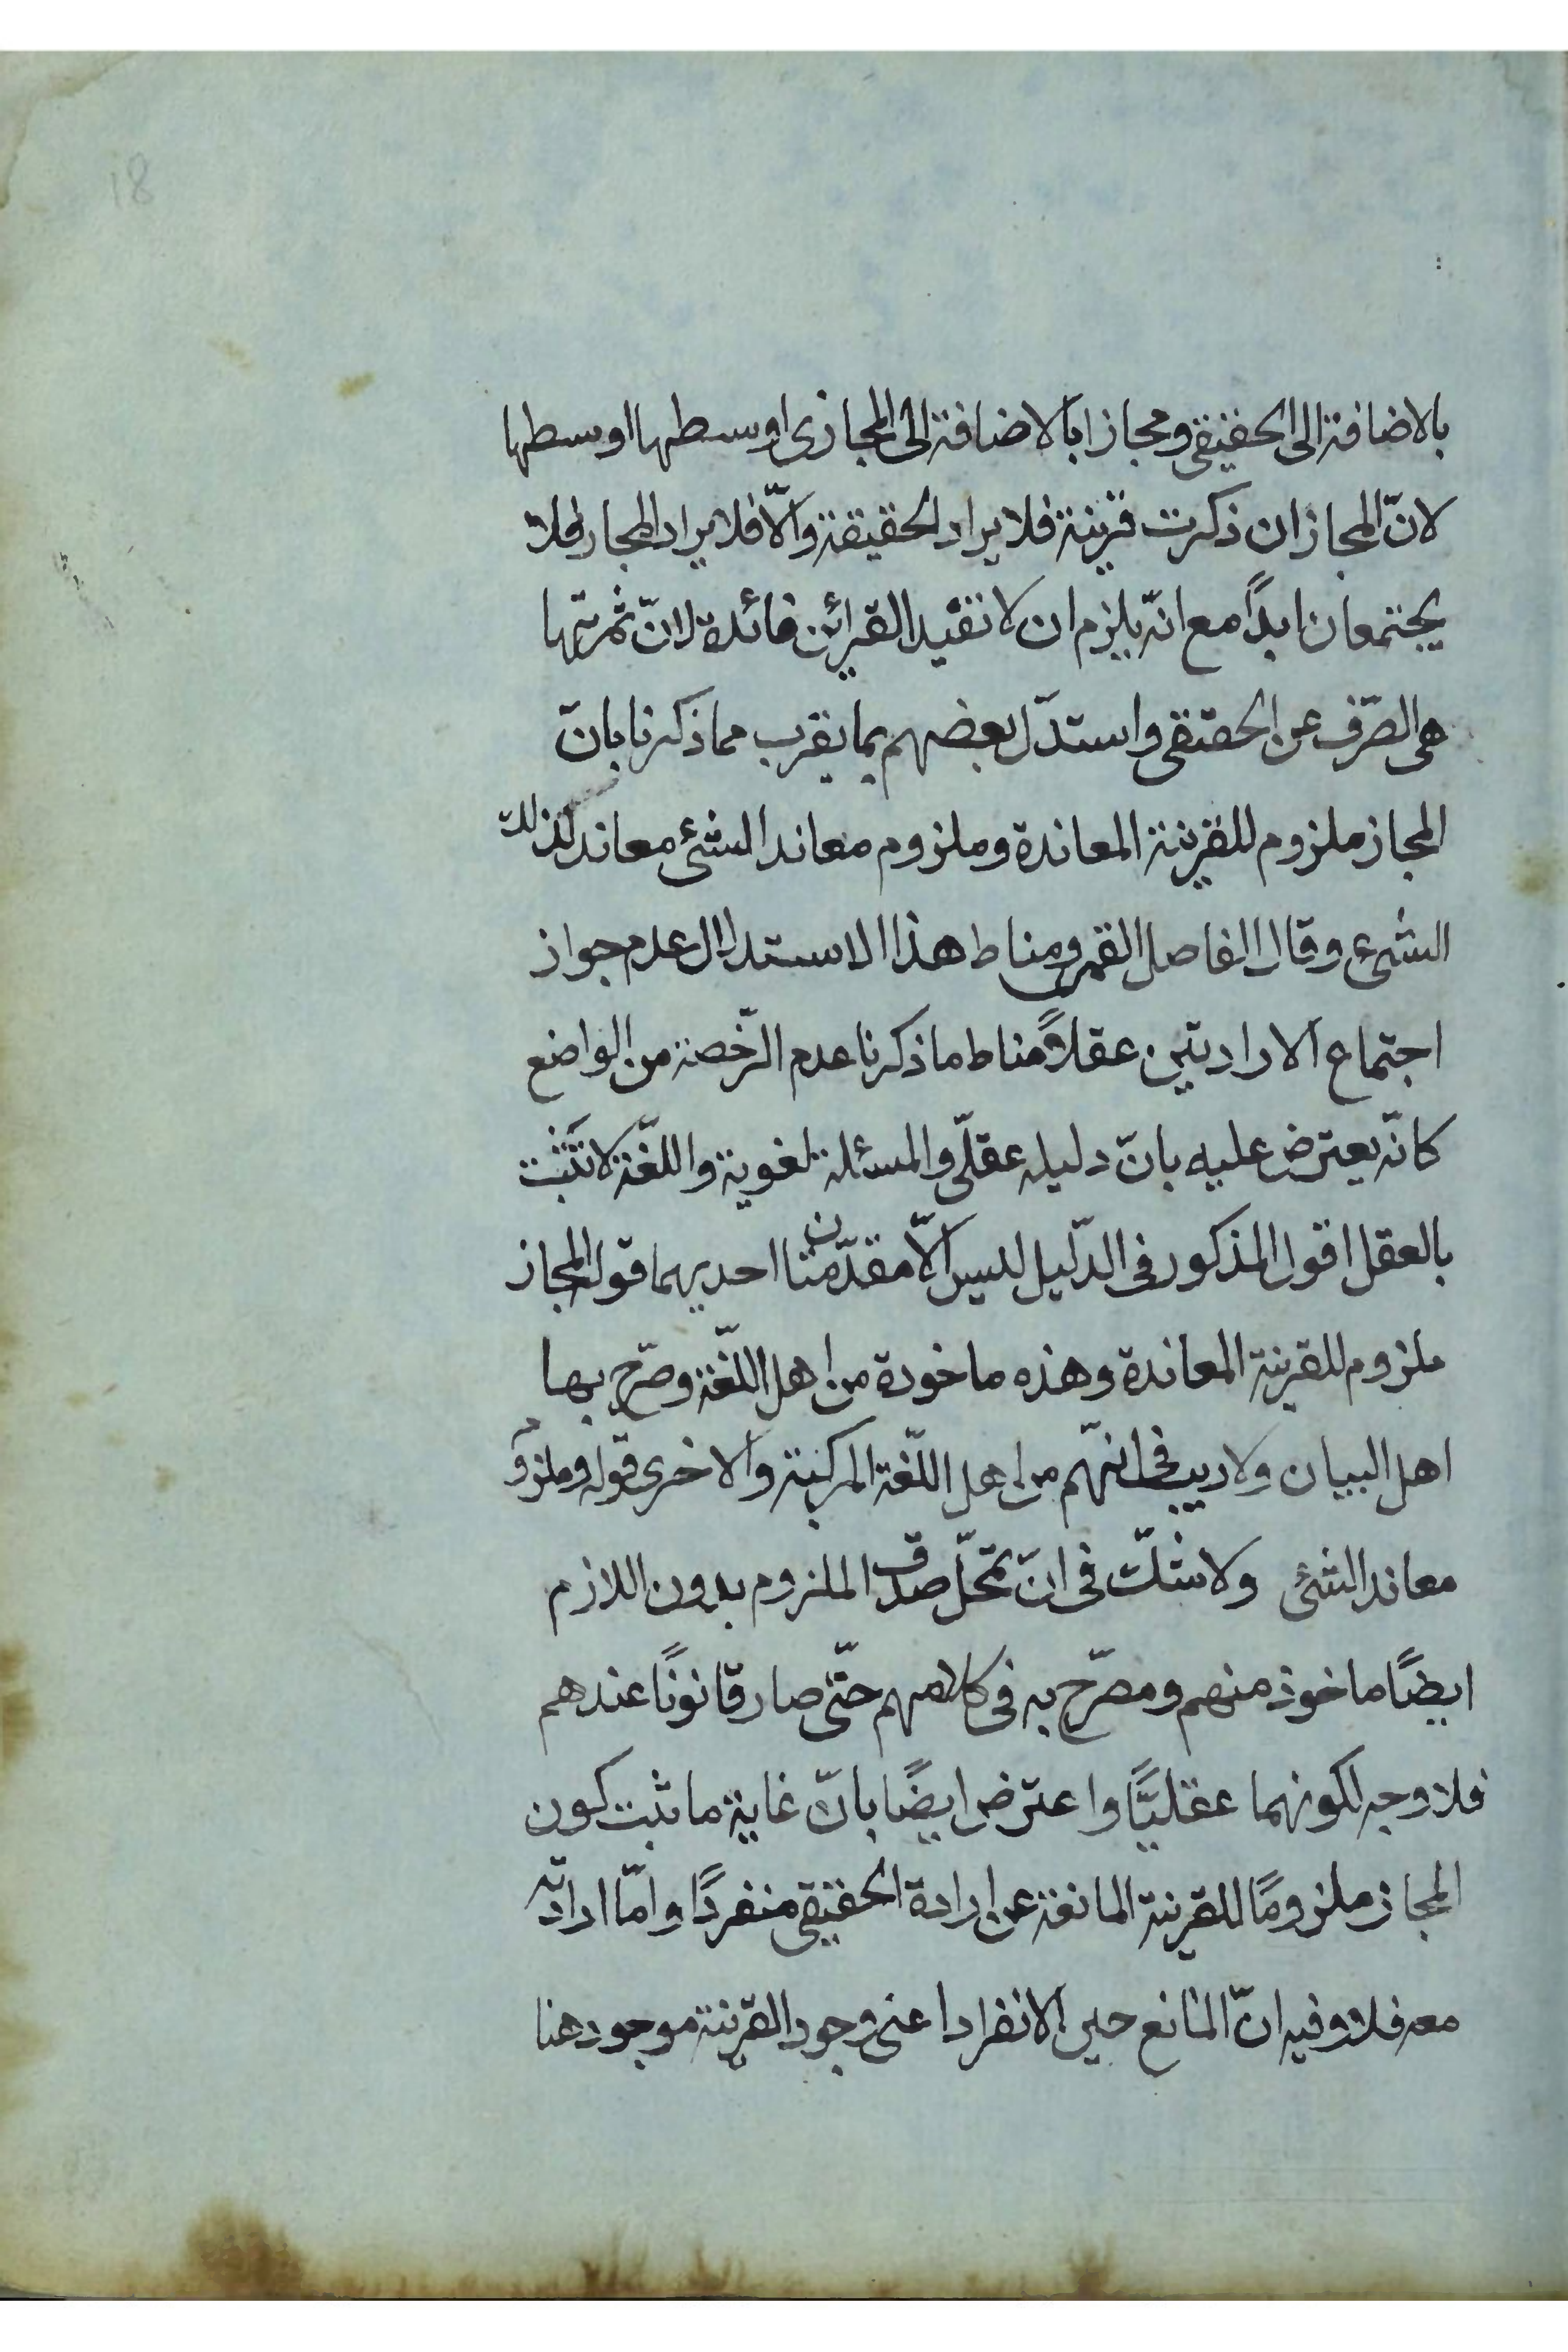 18
بالاضافة الى الحقيقى ومجازا بالاضافة الى المجازى اوسطها اوسطها
لانّ المجاز ان ذكرت قرينة فلا يراد الحقيقة والّا فلا يراد المجاز فلا
يجتمعان ابدًا مع انّه يلزم ان لا تفيد القرائن فائدة لانّ ثمرتها
هى الصّرف عن الحقيقى واستدلّ بعضهم بما يقرب مما ذكرنا بانّ
المجاز ملزوم للقرينة المعاندة وملزوم معاند الشئ معاند لذلك
الشئ وقال الفاضل القمى ومناط هذا الاستدلال عدم جواز
اجتماع الارادتين عقلاً ومناط ما ذكرنا عدم الرّخصة من الواضع
كانّه يعترض عليه بانّ دليله عقلّى والمسئلة لغوية واللّغة لا تثبت
بالعقل اقول المذكور فى الدّليل ليس الّا مقدّمتان احديهما قوله المجاز
ملزوم للقرينة المعاندة وهذه ماخودة من اهل اللّغة وصرّح بها
اهل البيان ولا ريب فى انّهم من اهل اللّغة المركبة والاخرى قوله وملزوم
معاند الشئ ولا شكّ فى انّ تمحّل صدق الملزوم بدون اللازم
ايضًا ماخوذ منهم ومصرّح به فى كلامهم حتّى صار قانونًا عندهم
فلا وجه لكونهما عقليًّا واعترض ايضًا بانّ غاية ما ثبت كون
المجاز ملزومًا للقرينة المانعة عن ارادة الحقيقى منفردًا وامّا ارادته
معه فلا وفيه انّ المانع حين الانفراد اعنى وجود القرينة موجود هنا